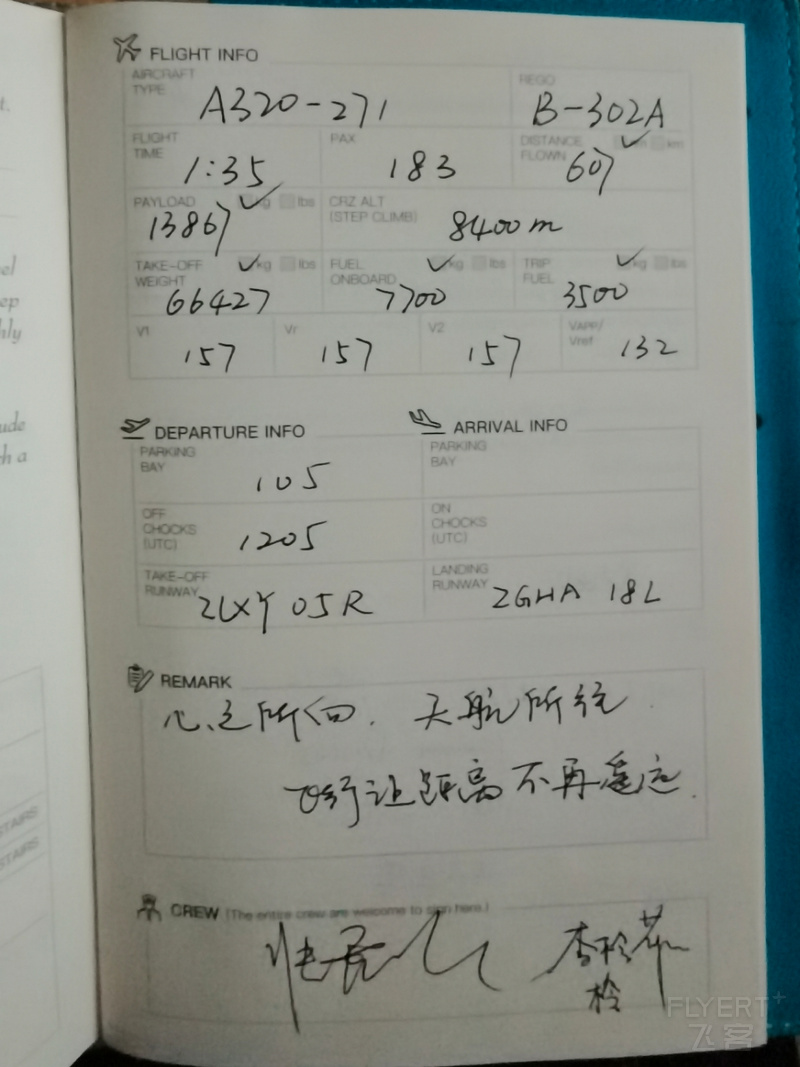 FLIGHT INFO
AIRCRAFT TYPE A320-271
REGO B-302A
FLIGHT TIME 1:35
PAX 183
DISTANCE FLOWN 607 km
PAYLOAD 13867 kg lbs
CRZ ALT (STEP CLIMB) 8400m
TAKE-OFF WEIGHT 66427 kg lbs
FUEL ONBOARD 7700 kg lbs
TRIP FUEL 3500 kg lbs
V1 157
Vr 157
V2 157
VAPP/Vref 132
DEPARTURE INFO
PARKING BAY 105
OFF CHOCKS (UTC) 1205
TAKE-OFF RUNWAY ZLXY 05R
ARRIVAL INFO
PARKING BAY
ON CHOCKS (UTC)
LANDING RUNWAY ZGHA 18L
REMARK
心之所向. 天航所往
飞行让距离不再遥远.
CREW (The entire crew are welcome to sign here.)
FLYERT+
飞客